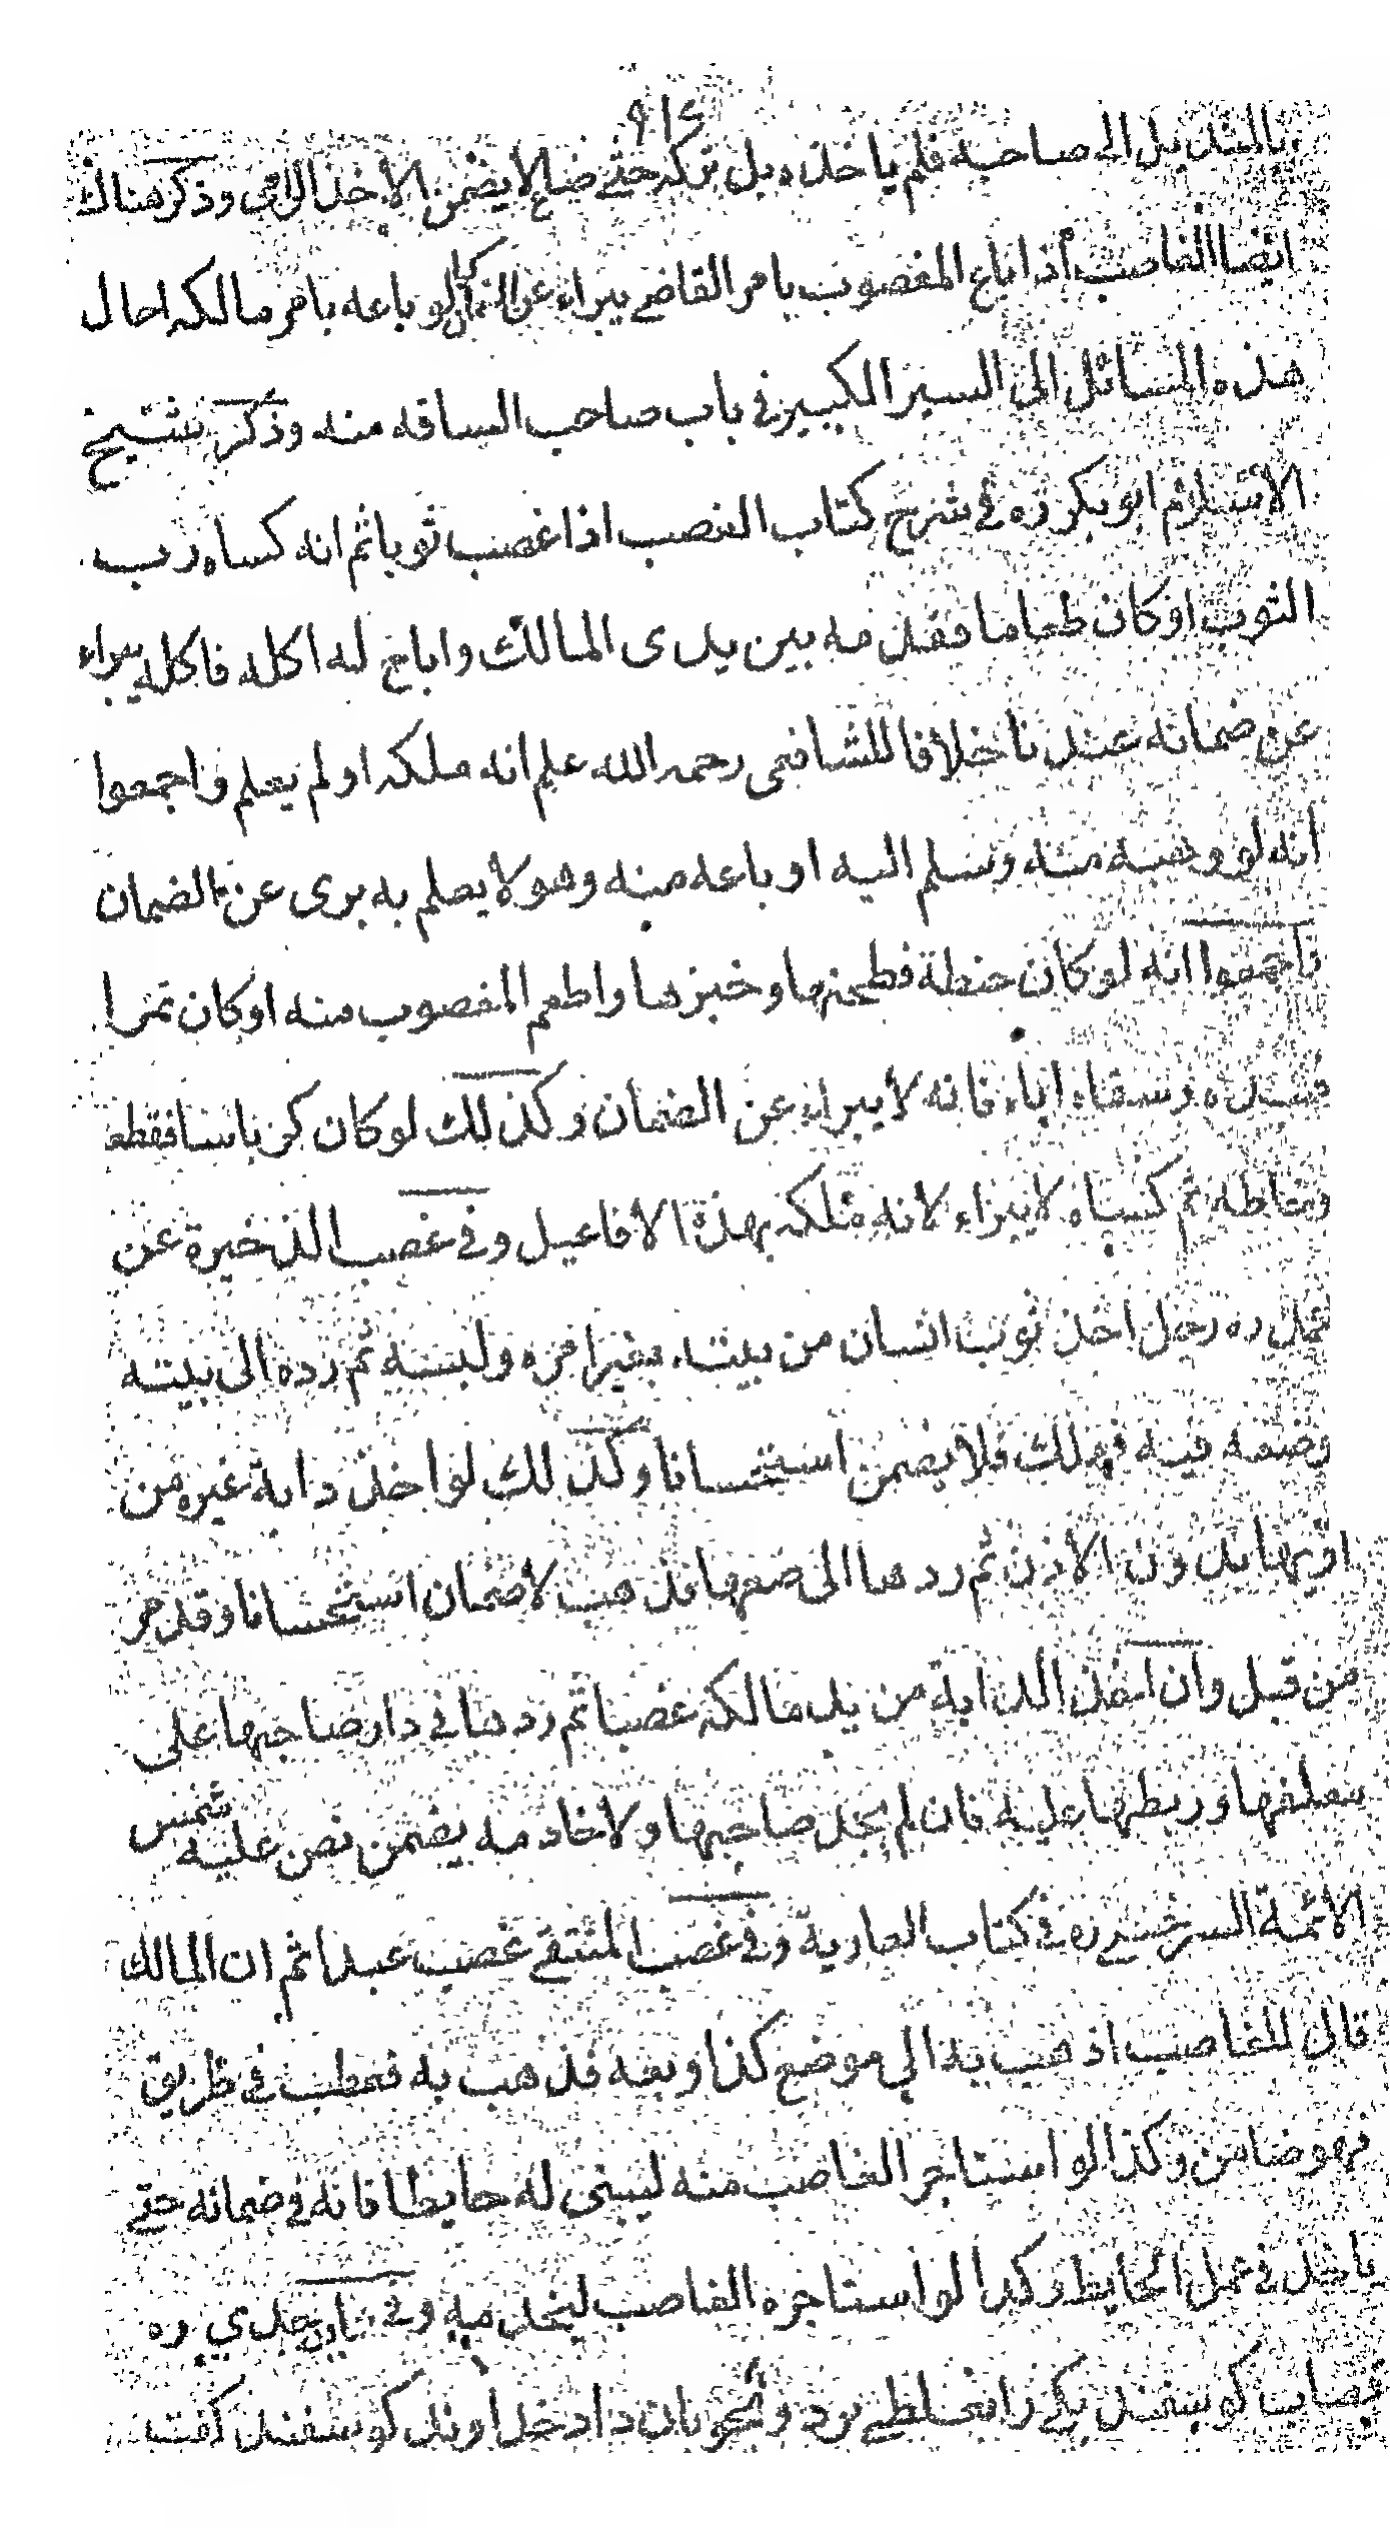 ٩١٤
بالمثل بل الى صاحبه فلم ياخذه بل تركه حتى ضاع لا يضمن الاخذ الراعى وذكر هناك
ايضا الغاصب اذا باع المغصوب بامر القاضى يبراء عن الضمان كما لو باعه بامر مالكه احال
هذه المسائل الى السير الكبير فى باب صاحب الساقه منه وذكر شيخ
الاسلام ابو بكر ره فى شرح كتاب الغصب اذا غصب ثوبا ثم انه كساه رب
الثوب او كان طعاما فقدمه بين يدى المالك واباح له اكله فاكله يبراء
عن ضمانه عندنا خلافا للشافعى رحمه الله علم انه ملكه او لم يعلم واجمعوا
انه لو وهبه منه وسلم اليه او باعه منه وهو لا يعلم به برى عن الضمان
واجمعوا انه لو كان حنطة فطحنها وخبزها واطعم المغصوب منه او كان تمرا
فنبذه وسقاه اياه فانه لا يبراء عن الضمان وكذلك لو كان كرباسا فقطعه
وخاطه ثم كساه لا يبراء لانه ملكه بهذه الافاعيل وفى غصب الذخيرة عن
محمد ره رجل اخذ ثوب انسان من بيته بغير امره ولبسه ثم رده الى بيته
وضعه فيه فهلك فلا يضمن استحسانا وكذلك لو اخذ دابة غيره من
اريها بدون الاذن ثم ردها الى ضعها فذهب لا ضمان استحسانا وقد مر
من قبل وان اخذ الدابة من يد مالكه غصبا ثم ردها فى دار صاحبها على
معلفها وربطها عليه فان لم يجد صاحبها ولا خادمه يضمن نص عليه شمس
الائمة السرخسى ره فى كتاب العارية وفى غصب المنتقى غصب عبدا ثم ان المالك
قال للغاصب اذهب به الى موضع كذا وبعه فذهب به فعطب فى طريق
فهو ضامن وكذا لو استاجر الغاصب منه ليبنى له حايطا فانه فى ضمانه حتى
ياخذ فى عمل الحايط وكذا لو استاجره الغاصب ليخدمه وفى ره
قصاب كوسفند يكى را بغلطى برد و بچوبان داد خداوند كوسفند كفت